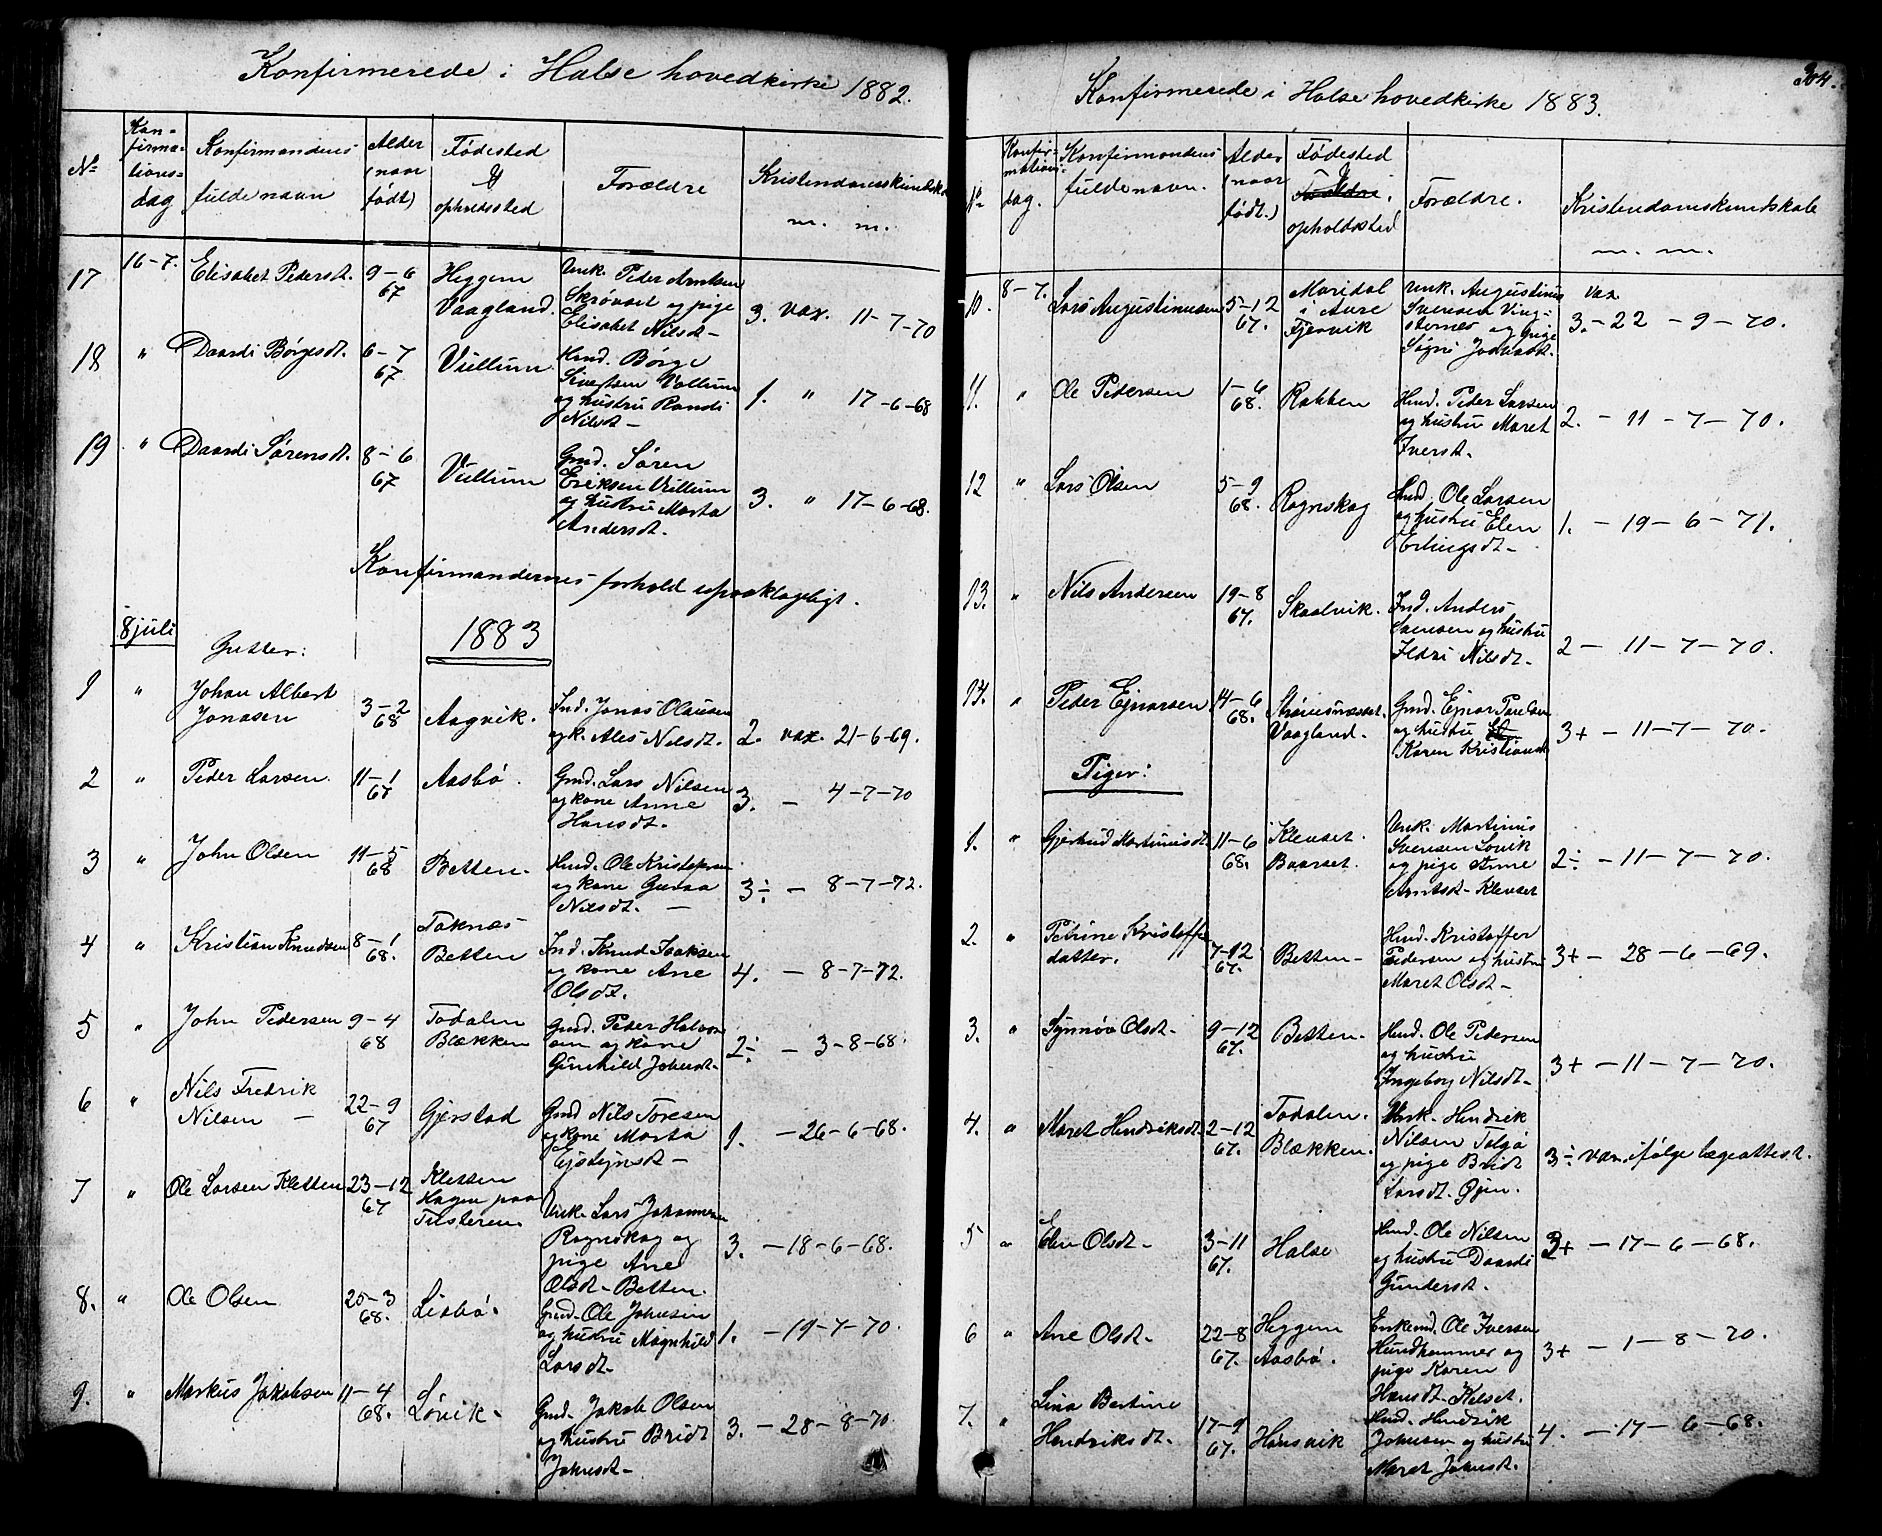 Konfirmerede i Halse hovedkirke 1882.
No
Kon-
firma-
tions-
dag
Konfirmandens
fulde navn
Alder
(naar
født)
Fødested
&
opholdssted
Forældre
Kristendomskundsk
m. m.
17 16-7. Elisabet Pedersdt. 9-6 67 Heggem Vaagland.
Unk. Peder Arntsen
Skrøvset og pige
Elisabet Nilsdt-
3. vax. 11-7-70
18 " Daardi Børgesdt. 6-7 67 Vullum
Hmd. Børge
Sivertsen Vullum
og hustru Randi
Nilsdt-
1. " 17-6-68
19 " Daardi Sørensdt. 8-6 67 Vullum
Gmd. Søren
Eriksen Vullum
og hustru Marta
Andersdt.
3. " 17-6-68.
Konfirmandernes forhold upaaklageligt.
8 juli
1883
Gutter:
1 " Johan Albert
Jonasen 3-2 68 Aagvik.
Ind. Jonas Olausen
og k. Ales Nilsdt.
2. vax. 21-6-69.
2 " Peder Larsen. 11-1 67 Aasbø.
Gmd. Lars Nilsen
og kone Anne
Hansdt.
3. - 4-7-70
3 " John Olsen 11-5 68 Betten.
Hmd. Ole Kristofersen
og kone Guraa
Nilsdt. -
3÷ - 8-7-72.
4 " Kristian Knudsen 8-1 68. Toknæs
Betten
Ind. Knud Isaksen
og kone Ane
Olsdt.
4. - 8-7-72.
5 " John Pedersen 9-4 68 Todalen
Blækken
Gmd. Peder Halvor
sen og kone
Gunhild Johnsdt-
2÷ - 3-8-68.
6 " Nils Fredrik
Nilsen - 22-9 67 Gjerstad
Gmd Nils Toresen
og kone Marta
Ejstejnsdt-
1. - 26-6-68.
7 " Ole Larsen Kletten 23-12 67 Kletten
Hagen paa
Tusteren
Unk. Lars Johannesen
Rognskog og
pige Ane
Olsdt- Betten.
3. - 18-6-68.
8. " Ole Olsen 25-3 68. Lisbø.
Gmd. Ole Johnsen
og hustru Magnhild
Larsdt-
1. - 19-7-70.
9. " Markus Jakobsen 11-4 68. Løvik-
Gmd. Jakob Olsen
og hustru Bridt
Johnsdt-
3. - 28-8-70.
Konfirmerede i Halse hovedkirke 1883.
304.
No
Konfir-
mations
dag.
Konfirmandens
fulde navn.
Alder
(naar
født.)
Fødested
&
Forældre.
opholdssted
Forældre.
Kristendomskundskab
m. m.
10. 8-7. Lars Augustinusen 5-12 67. Maridal
i Aure
Fjørvik
Unk. Augustinus
Svensen Ving-
sternes og pige
Søgni Johnsdt.
vax.
3.-22-9-70.
11. " Ole Pedersen 1-6 68. Rakken
Hmd. Peder Larsen
og hustru Maret
Iversdt.
2. - 11-7-70.
12 " Lars Olsen 5-9 68. Rognskog
Hmd. Ole Larsen
og hustru Elen
Erlingsdt-
1. - 19-6-71.
13. " Nils Andersen 19-8 67. Skaalvik.
Ind. Anders
Svensen og hustru
Ildri Nilsdt-
2 - 11-7-70.
14. " Peder Ejnarsen 14-6 68. Strømsnæsset.
Vaagland-
Gmd. Ejnar
og hustru
Karen Kristiansdt
3+ - 11-7-70.
Piger:
1. " Gjertrud Martinusdt 11-6 68. Klevset.
Baarset.
Unk. Martinus
Svensen Løvik
og pige Anne
Arntsdt- Klevset
2÷ - 11-7-70.
2. " Petrine Kristoffer
datter. 7-12 67. Betten-
Hmd. Kristoffer
Pedersen og hustru
Maret Olsdt-
3+ - 28-6-69.
3. " Synnøv Olsdt- 9-12 67. Betten-
Hmd. Ole Pedersen
og hustru
Ingeborg Nilsdt-
3+ - 11-7-70.
4. " Maret Hendriksdt. 2-12 67. Todalen.
Blækken.
Unk. Hendrik
Nilsen Talgø
og pige Bridt
Larsdt. Øjen.
3÷ vax. ifølge lægeattest.
5 " Elen Olsdt- 3-11 67. Halse
Hmd. Ole Nilsen
og hustru Daardi
Gundersdt.
3+ - 17-6-68.
6 " Ane Olsdt- 22-8 67. Heggem
Aasbø.
Enkemd. Ole Iversen
Hundhammer og
pige Karen
Hansdt- Kilset.
3+ - 1-8-70.
7. " Lina Bertine
Hendriksdt. 17-9 67. Hønsvik
Hmd. Hendrik
Johnsen og hustru
Maret Johnsdt.
4. - 17-6-68.